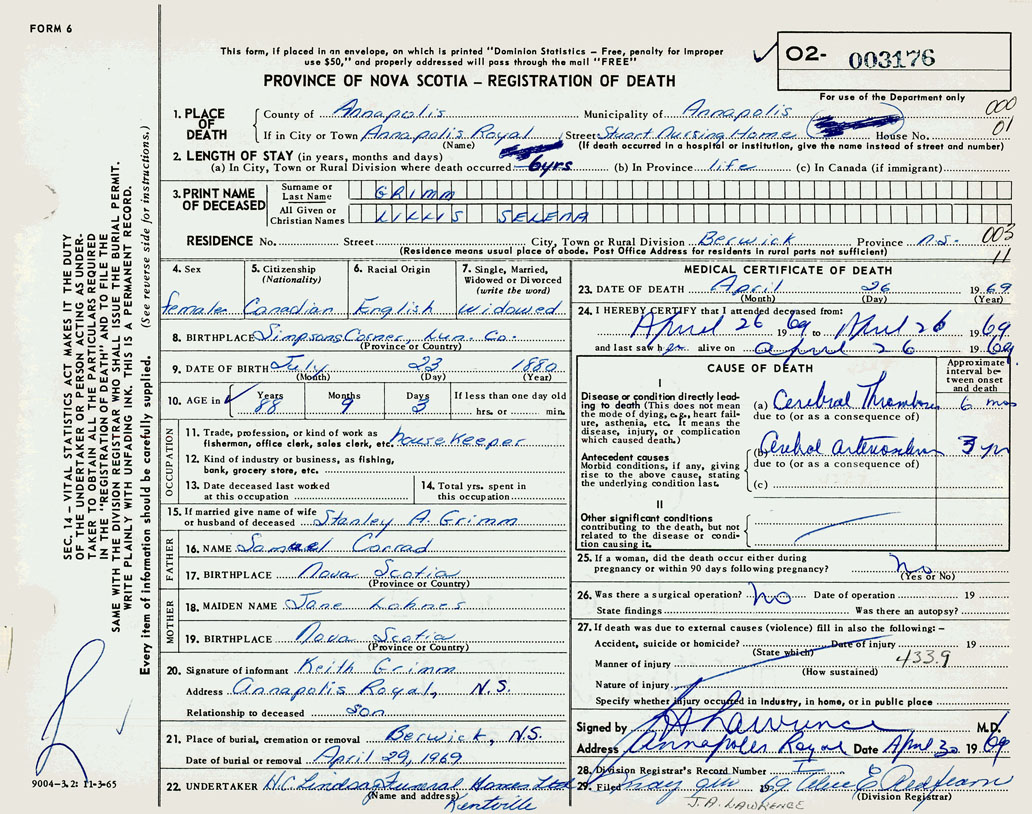 FORM 6
This form, if placed in an envelope, on which is printed "Dominion Statistics – Free, penalty for improper
use $50," and properly addressed will pass through the mail "FREE"
PROVINCE OF NOVA SCOTIA – REGISTRATION OF DEATH
O2- 003176
For use of the Department only
000
01
1. PLACE OF DEATH
County of Annapolis Municipality of Annapolis
If in City or Town Annapolis Royal Street Stuart Nursing Home House No.
(Name) (If death occurred in a hospital or institution, give the name instead of street and number)
2. LENGTH OF STAY (in years, months and days)
(a) In City, Town or Rural Division where death occurred 6yrs (b) In Province life (c) In Canada (if immigrant)
3. PRINT NAME OF DECEASED
Surname or Last Name GRIMM
All Given or Christian Names LILLIS SELENA
RESIDENCE No. Street City, Town or Rural Division Berwick Province N.S. 003
(Residence means usual place of abode. Post Office Address for residents in rural parts not sufficient) 11
4. Sex
female
5. Citizenship
(Nationality)
Canadian
6. Racial Origin
English
7. Single, Married,
Widowed or Divorced
(write the word)
Widowed
8. BIRTHPLACE Simpsons Corner, Lun. Co.
(Province or Country)
9. DATE OF BIRTH July 23 1880
(Month) (Day) (Year)
10. AGE in Years Months Days If less than one day old
88 9 3 hrs. or min.
OCCUPATION
11. Trade, profession, or kind of work as
fisherman, office clerk, sales clerk, etc. housekeeper
12. Kind of industry or business, as fishing,
bank, grocery store, etc.
13. Date deceased last worked
at this occupation
14. Total yrs. spent in
this occupation
15. If married give name of wife
or husband of deceased Stanley A. Grimm
FATHER
16. NAME Samuel Conrad
17. BIRTHPLACE Nova Scotia
(Province or Country)
MOTHER
18. MAIDEN NAME Jane Lohnes
19. BIRTHPLACE Nova Scotia
(Province or Country)
20. Signature of informant Keith Grimm
Address Annapolis Royal, N.S.
Relationship to deceased son
21. Place of burial, cremation or removal Berwick, N.S.
Date of burial or removal April 29, 1969
22. UNDERTAKER H.C. Lindsay Funeral Homes Ltd
(Name and address) Kentville
MEDICAL CERTIFICATE OF DEATH
23. DATE OF DEATH April 26 1969
(Month) (Day) (Year)
24. I HEREBY CERTIFY that I attended deceased from:
April 26 1969 to April 26 1969
and last saw her alive on April 26 1969
CAUSE OF DEATH
Approximate
interval be-
tween onset
and death
I
Disease or condition directly lead-
ing to death (This does not mean
the mode of dying, e.g., heart fail-
ure, asthenia, etc. It means the
disease, injury, or complication
which caused death.)
(a) Cerebral Thrombosis 6 mos
due to (or as a consequence of)
Antecedent causes
Morbid conditions, if any, giving
rise to the above cause, stating
the underlying condition last.
(b) Cerebral 3 yrs
due to (or as a consequence of)
(c)
II
Other significant conditions
contributing to the death, but not
related to the disease or condi-
tion causing it.
25. If a woman, did the death occur either during
pregnancy or within 90 days following pregnancy? No
(Yes or No)
26. Was there a surgical operation? No Date of operation 19
State findings Was there an autopsy?
27. If death was due to external causes (violence) fill in also the following: –
Accident, suicide or homicide? Date of injury 19
(State which)
Manner of injury 433.9
(How sustained)
Nature of injury
Specify whether injury occurred in Industry, in home, or in public place
Signed by Lawrence M.D.
Address Annapolis Royal Date April 30 1969
28. Division Registrar's Record Number
29. Filed May 1969
(Division Registrar)
J.A. LAWRENCE
SEC. 14 – VITAL STATISTICS ACT MAKES IT THE DUTY
OF THE UNDERTAKER OR PERSON ACTING AS UNDER-
TAKER TO OBTAIN ALL THE PARTICULARS REQUIRED
IN THE "REGISTRATION OF DEATH" AND TO FILE THE
SAME WITH THE DIVISION REGISTRAR WHO SHALL ISSUE THE BURIAL PERMIT.
WRITE PLAINLY WITH UNFADING INK. THIS IS A PERMANENT RECORD.
Every item of information should be carefully supplied. (See reverse side for instructions.)
9004-3.2: 11-3-65